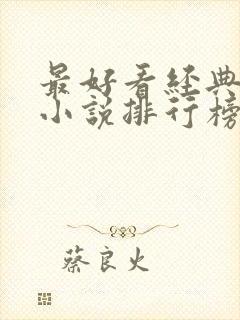 最好看经典
小说排行榜
蔡良火